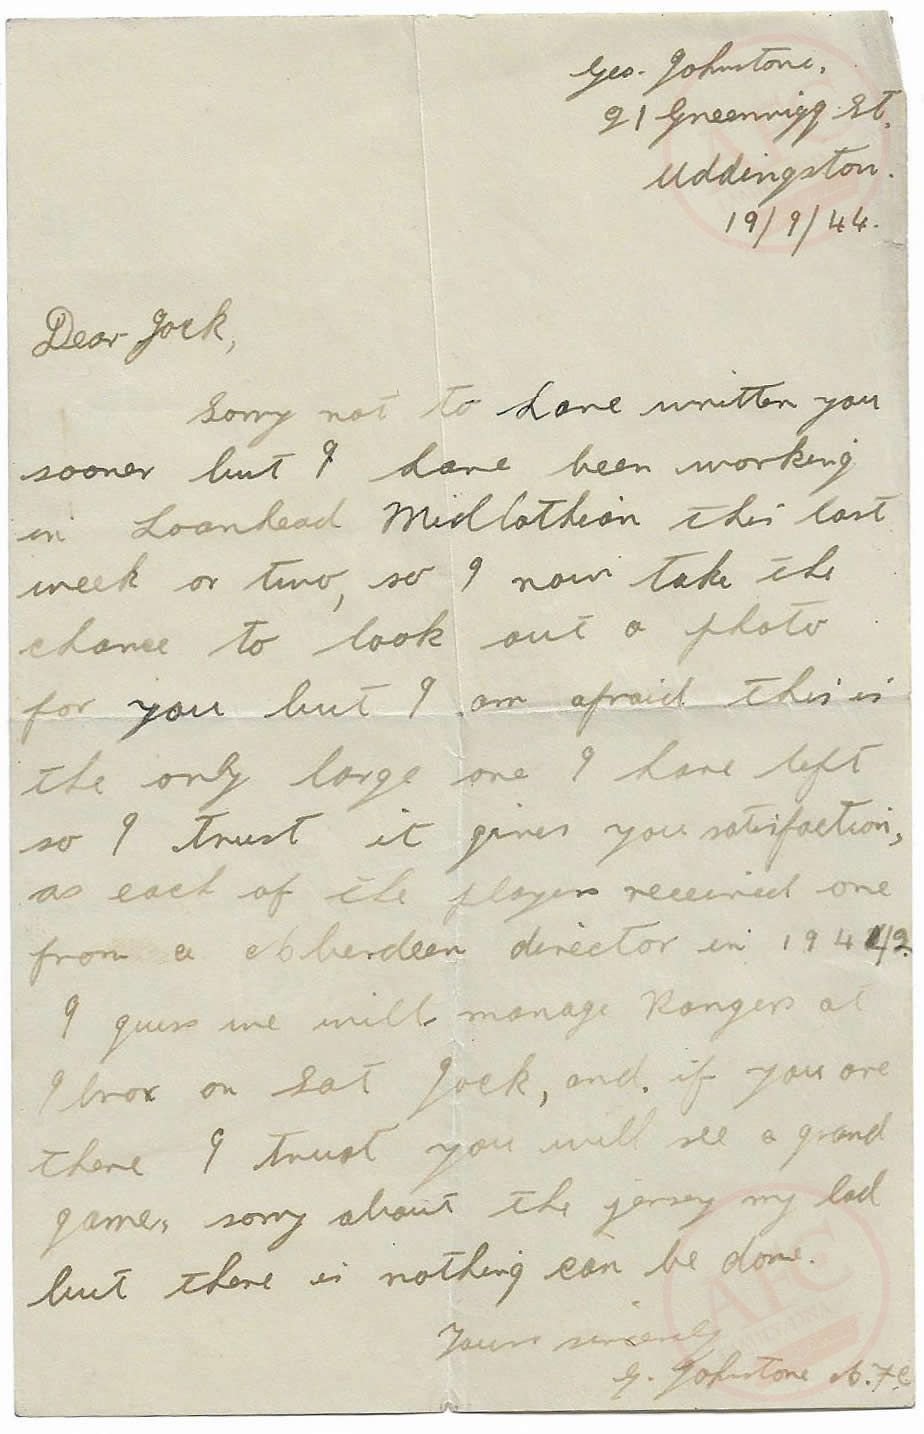 Geo. Johnstone,
21 Greenrigg St,
Uddingston.
19/9/44.
Dear Jock,
Sorry not to have written you
sooner but I have been working
in Loanhead Midlothian this last
week or two, so I now take the
chance to look out a photo
for you but I am afraid this is
the only large one I have left
so I trust it gives you satisfaction,
as each of the players received one
from a Aberdeen director in 1941/2.
I guess we will manage Rangers at
Ibrox on Sat Jock, and. if you are
there I trust you will see a grand
game, sorry about the jersey my lad
but there is nothing can be done.
Yours sincerely
G. Johnstone A.F.C
AFC